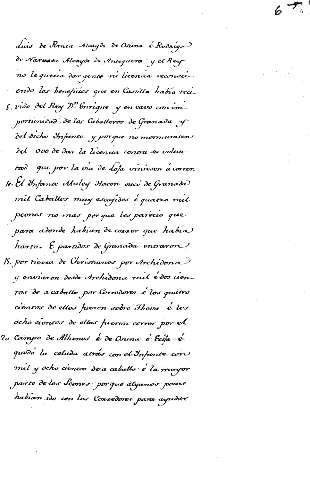 6
Luis de Pernia Alcayde de Osuna é Rodrigo
de Narvaez Alcayde de Antequera y el Rey
no le queria dar gente ni licencia reconoci-
endo los beneficios que en Castilla habia reci-
5. vido del Rey Dn. Enrique y en vano con im
portunidad de los Caballeros de Granada y
del dicho Infante y porque no murmurasen
del ovo de dar la licencia contra su volun
tad que por la via de Loja viniesen á correr
10. El Infante Muley Hacen sacó de Granada
mil Caballos muy escogidos é quatro mil
peones no mas por que les parecio que
para adonde habian de entrar que habia
harto. E partidos de Granada entraron
15. por tierra de Christianos por Archidona
y enviaron desde Archidona mil é dos cien-
tos de a caballo por Corredores é los quatro
cientos de ellos fueron sobre é los
ocho cientos de ellos fueron correr por el
20 Campo de Alhonos é de Osuna é Ecija é
quedó la celada atrás con el Infante con
mil y ocho cientos de a caballo é la mayor
parte de los Peones porque algunos pocos
habian ido con los Corredores para ayudar